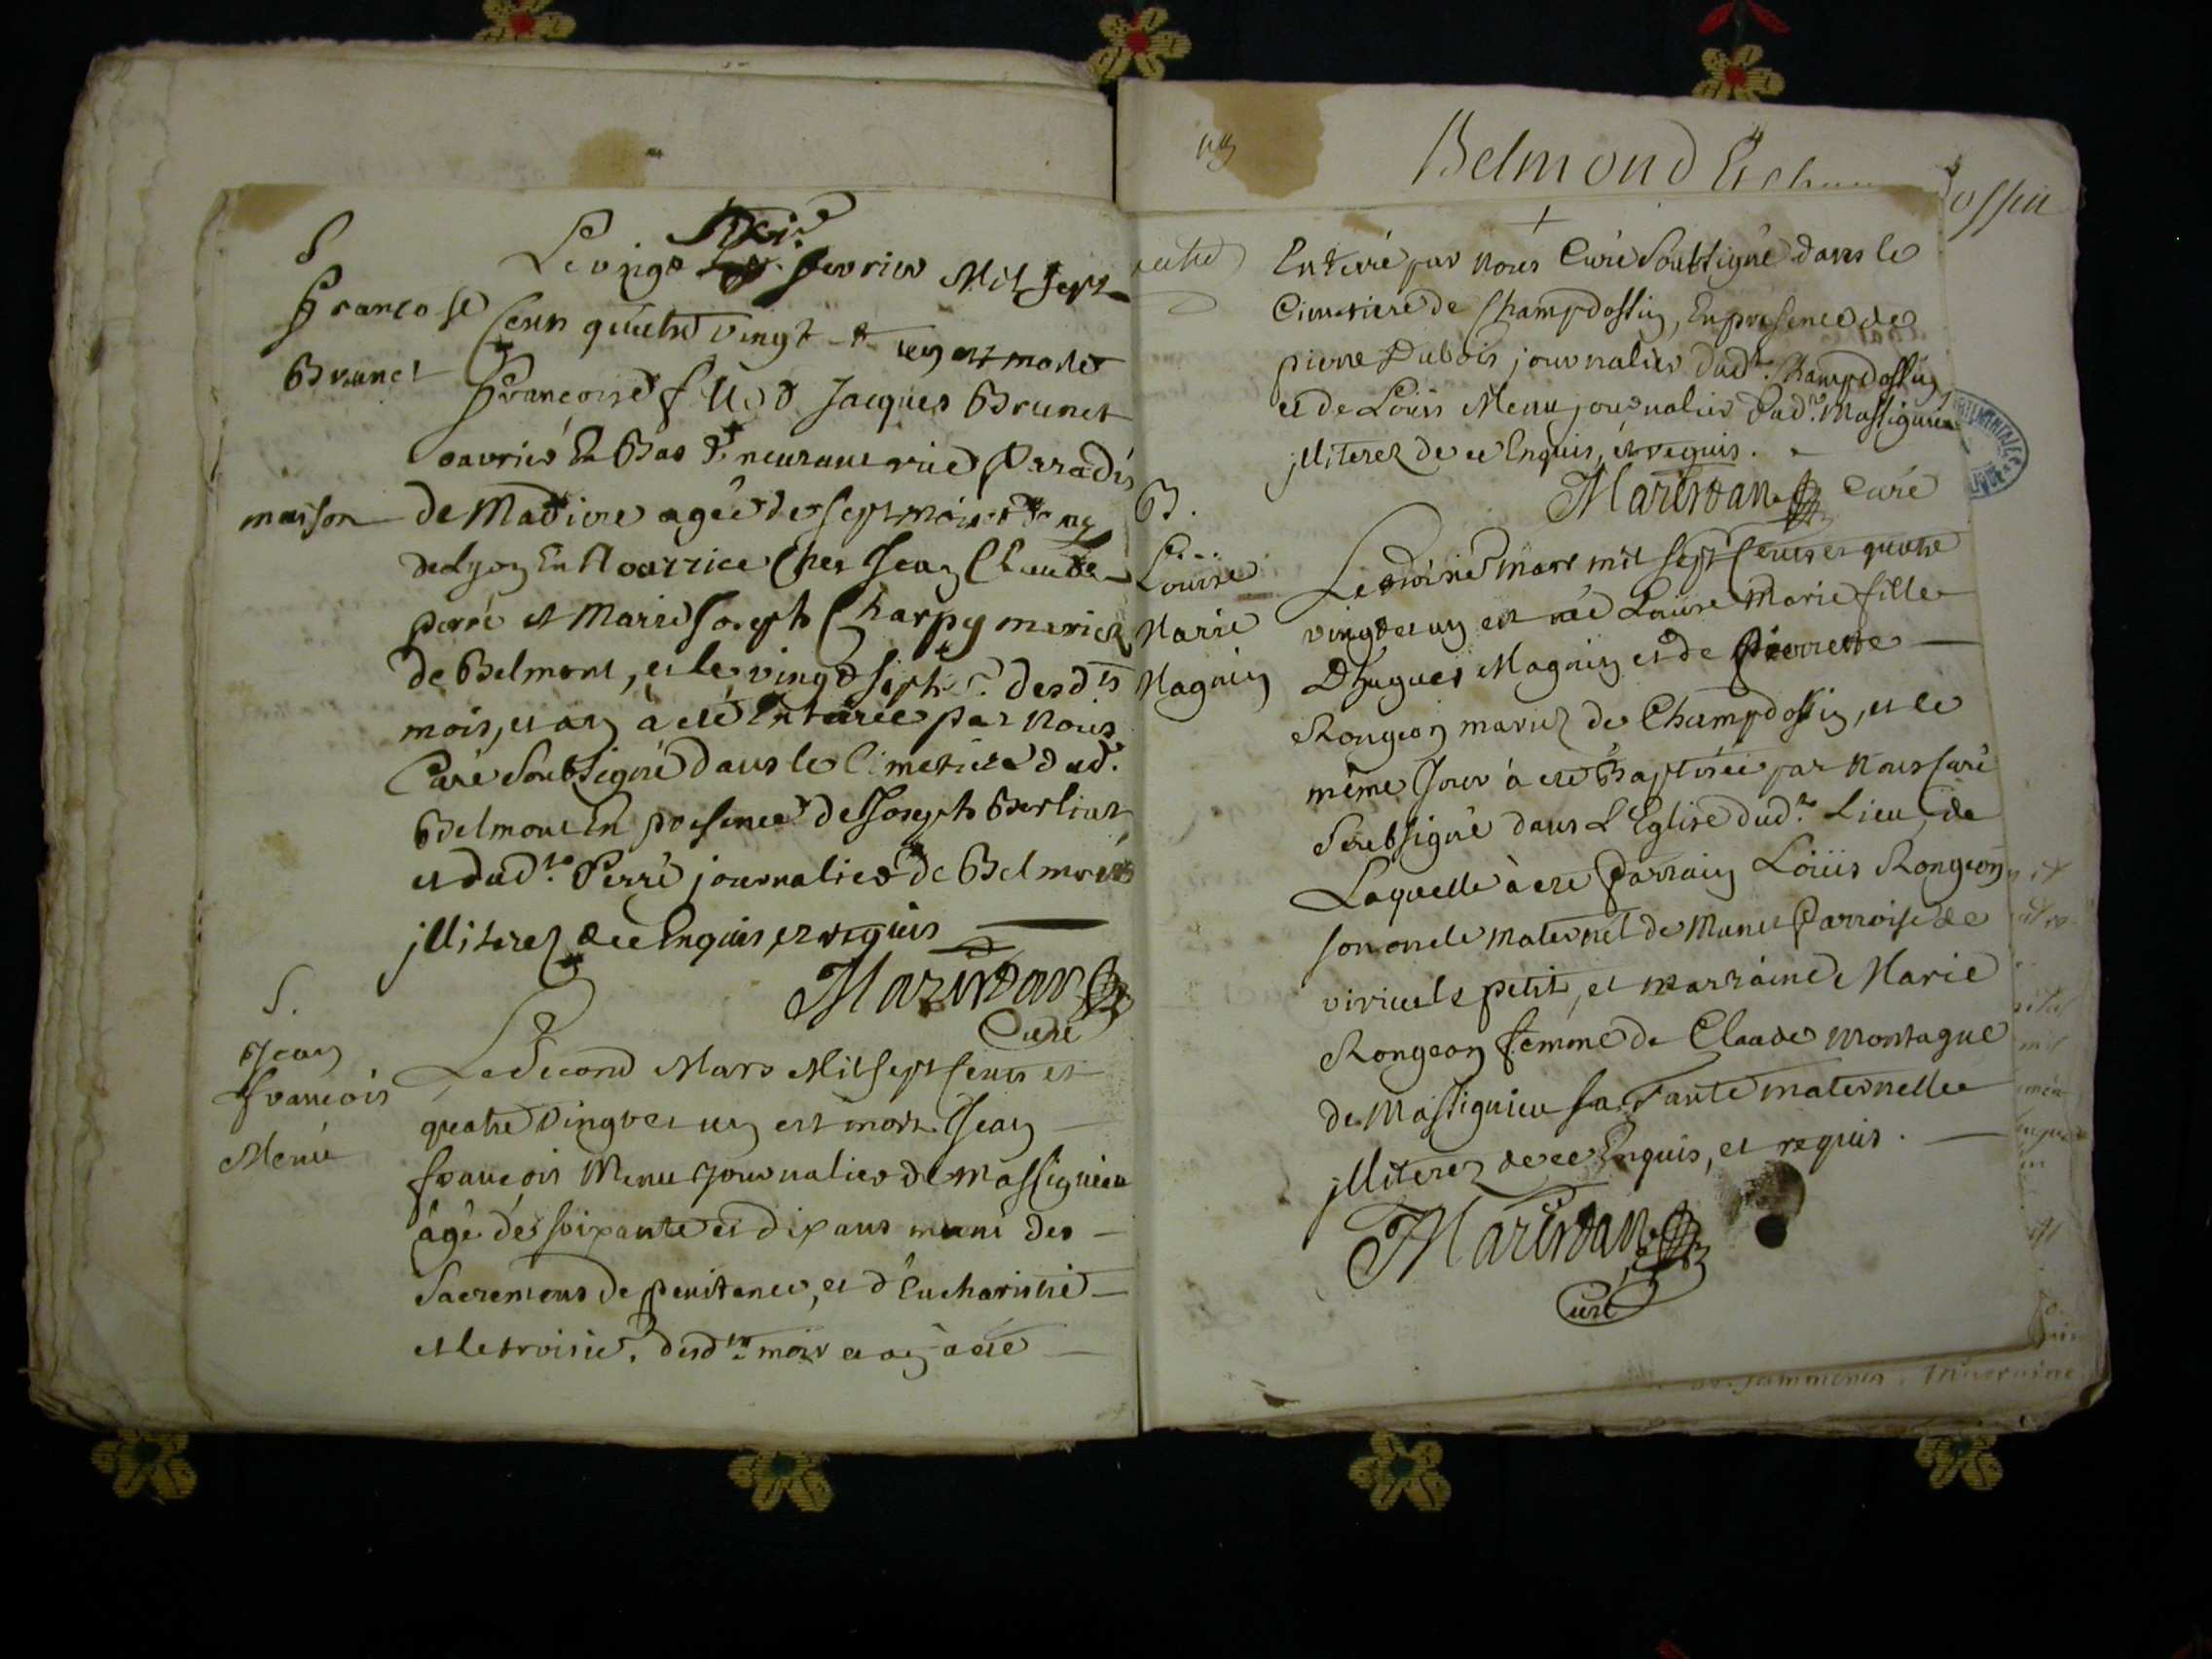 S
Françoise
Brunet
Le vingt sixie. fevrier Mil Sept
Cens quatre vingt et un est morte
Françoise fille d Jacques Brunet
ouvrier En Bas demeurant rue Paradis
maison de Madiere agée de sept mois
de Lyon En Nourrice Ches Jean Claude
perré et Marie Joseph Charpy mariez
de Belmont, et le vingt septie. desdts
mois, et an à eté Enterrée par Nous
Curé Soubsigné dans le Cimetiere dud.
Belmont En presence de Joseph Berliet
et dudt. Perré journaliers de Belmont
jlliterez de ce Enquis, et requis
Marindan
Curé
S.
Jean
françois
Menu
Le Second Mars Mil Sept Cens et
quatre Vingt et un est mort Jean
françois Menu Journalier de Massignieu
âgé de soixante et dix ans muni des
Sacremens de penitence, et d'Eucharistie
et le troisie. desdts mois et an à eté
Belmond
ossin
Enterré par nous Curé Soubsigné dans le
Cimetiere de Champdossin, En presence de
pierre Dubois journalier dudt. Champdossin
et de Loüis Menu journalier dudt. Massignieu
jlliterez de ce Enquis, et requis.
Marindan Curé
B.
Louise
Marie
Magnin
Le troisie Mars mil sept Cens et quatre
vingt et un est née Louise Marie fille
D'hugues Magnin et de Pierrette
Rongeon mariez de Champdossin, et le
même Jour à eté Baptisée par Nous Curé
Soubsigné dans L'Eglise dudt. Lieu, de
Laquelle à eté Parrain Loüis Rongeon
son oncle maternel de Munet Parroisse de
virieu le petit, et marraine Marie
Rongeon femme de Claude Montagne
de Massignieu sa Tante maternelle
jlliterez de ce Enquis, et requis.
Marindan
Curé